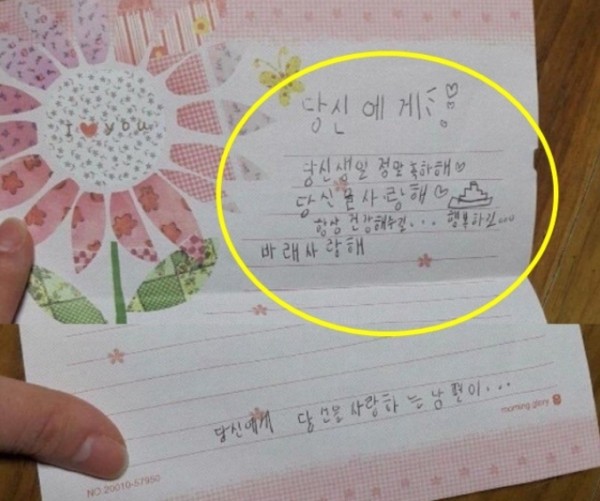 I ♥ you
당신에게
당신생일 정말 축하해♡
당신을 사랑해♡
항상 건강해주길... 행복하길...
바래사랑해
당신에게 당신을 사랑하는 남편이...
morning glory
NO.20010-87950